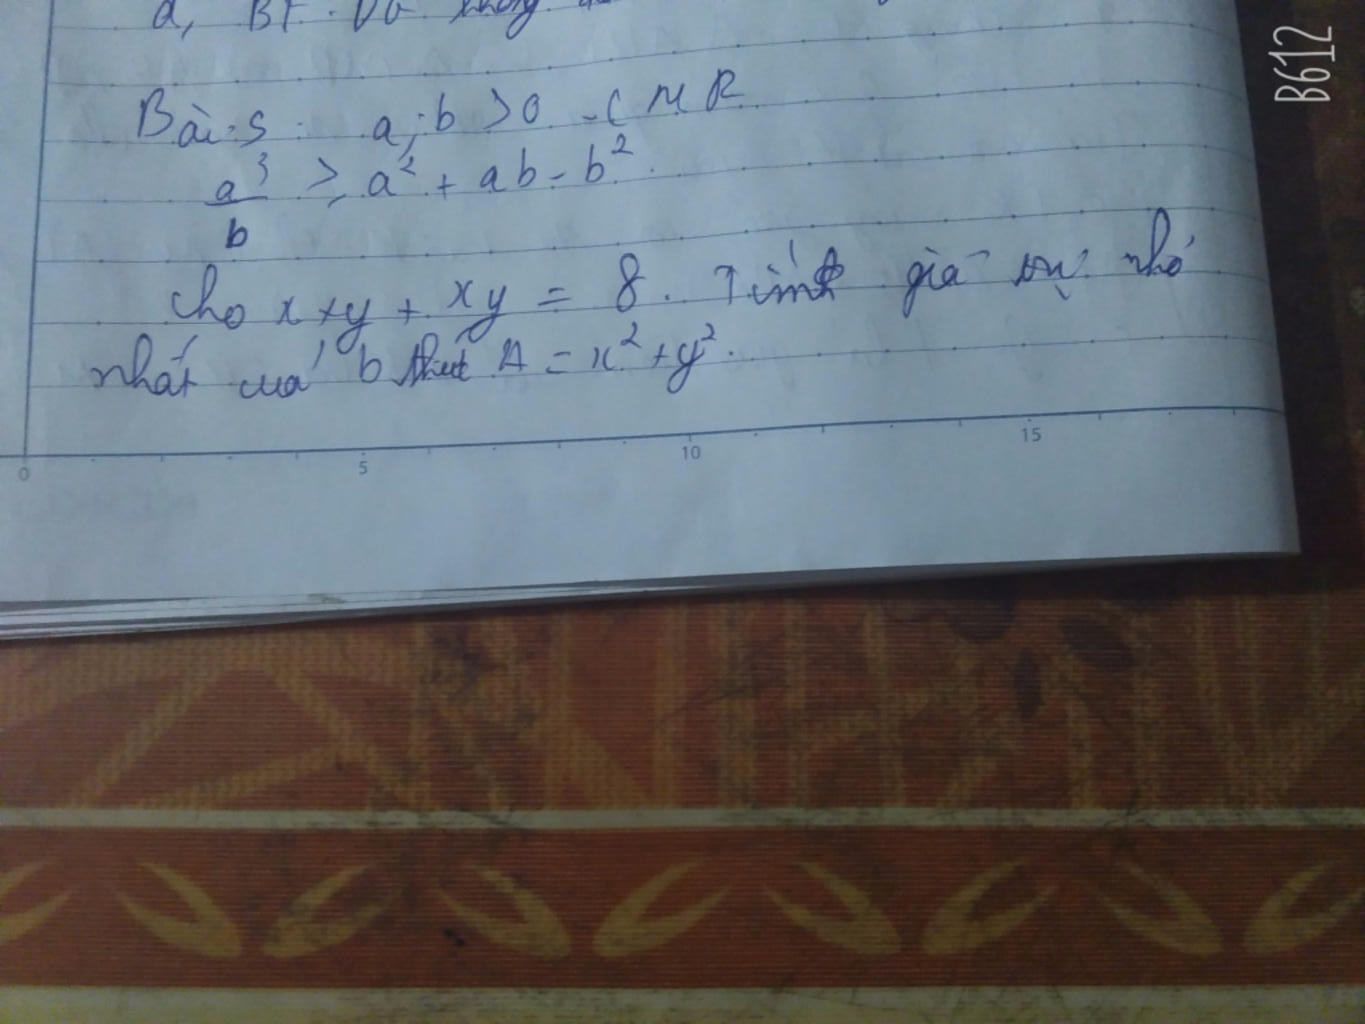 a, BT
Bài 5: a; b > 0 - CMR
a³/b ≥ a² + ab - b².
Cho x + y + xy = 8. Tính giá trị nhỏ
nhất của b thứt A = x² + y².
0 5 10 15
B612